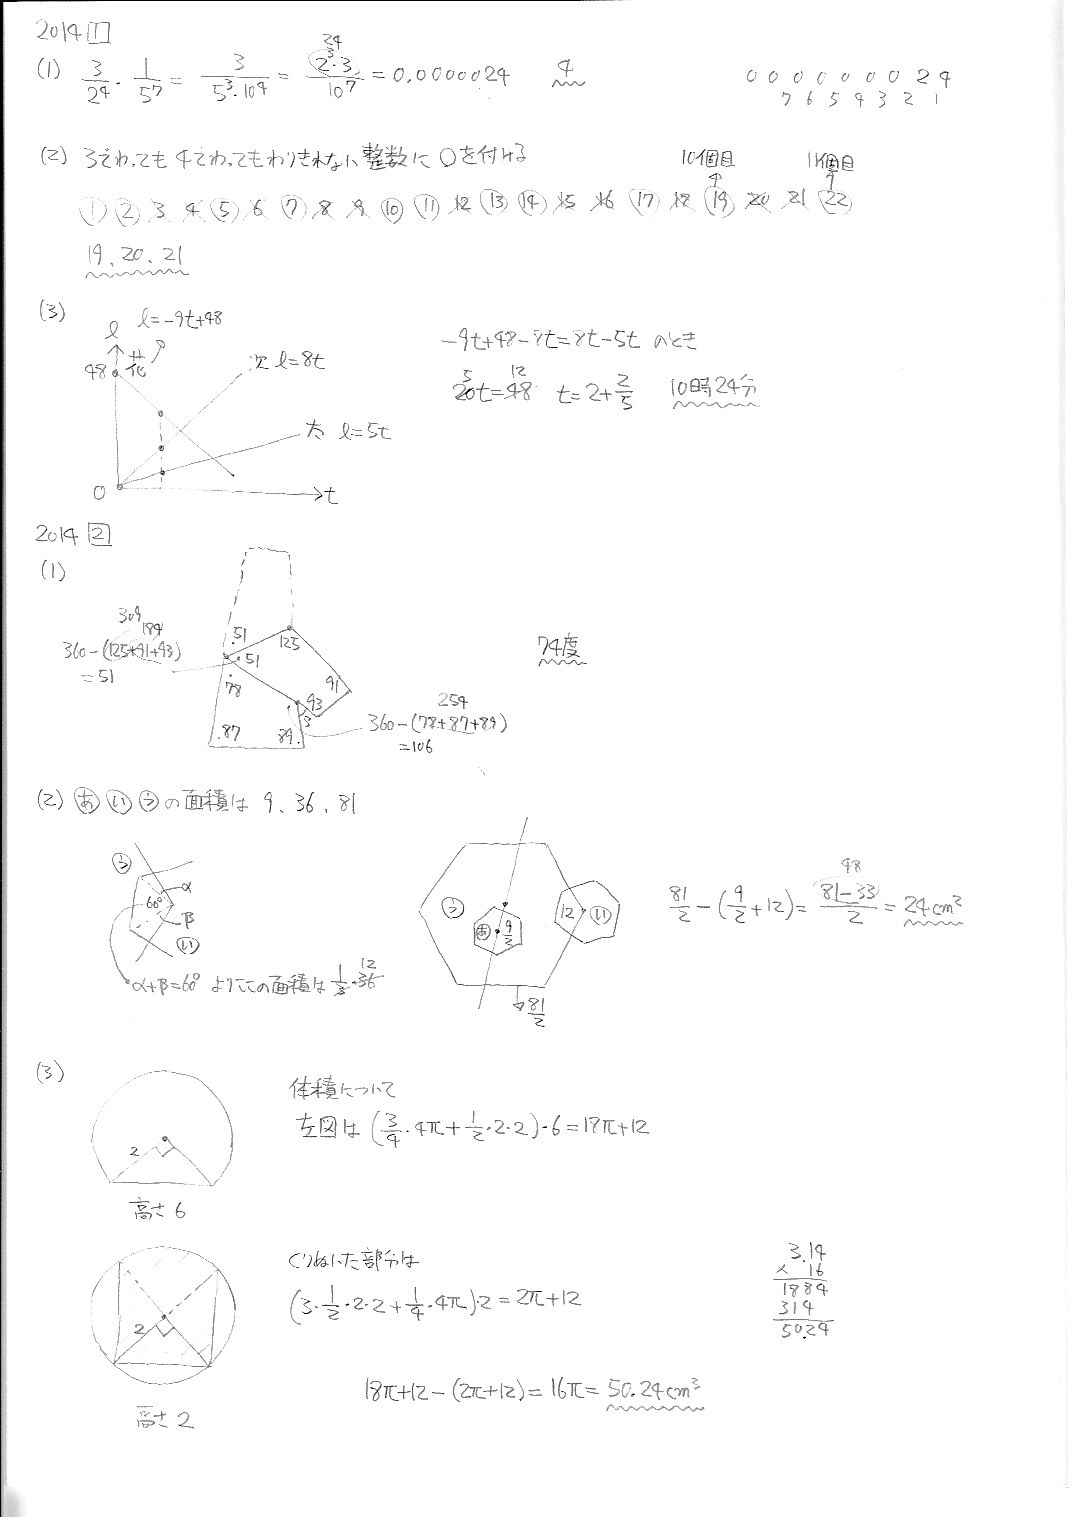 2014 1
(1) 3/2⁴・1/5⁷ = 3/5³・10⁴ = 2³・3/10⁷ = 0.0000024 4
24
0 0 0 0 0 0 0 2 4
7 6 5 4 3 2 1
(2) 3でわっても4でわってもわりきれない整数に○を付ける
10個目 11個目
① ② 3 4 ⑤ 6 ⑦ 8 9 ⑩ ⑪ 12 ⑬ ⑭ 15 16 ⑰ 18 ⑲ 20 21 ㉒
19、20、21
(3)
l l=-9t+48
花
48
次 l=8t
太 l=5t
0 t
-9t+48-8t=8t-5t のとき
20t=48 t=2+2/5 10時24分
5 12
2014 2
(1)
309
184
360-(125+91+93)
=51
51
125
51
78
91
93
3
87
89
254
360-(78+87+89)
=106
74度
(2) あ い う の面積は 9、36、81
う
α
60°
β
い
α+β=60° よりここの面積は 1/3・36
12
う
あ 9/2
12 い
81/2
48
81/2-(9/2+12)=81-33/2=24cm²
(3)
2
高さ6
体積について
左図は (3/4・4π+1/2・2・2)・6=18π+12
2
高さ2
くりぬいた部分は
(3・1/2・2・2+1/4・4π)・2=2π+12
3.14
× 16
1884
314
50.24
18π+12-(2π+12)=16π=50.24cm³